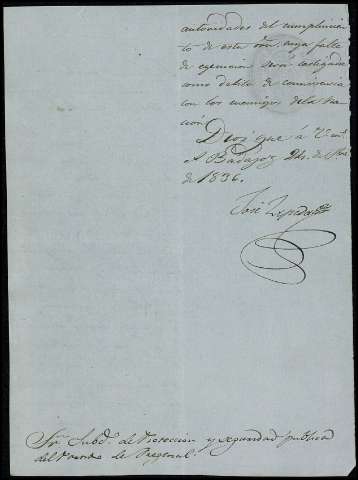 autoridades del cumplimien
to de esta orn. cuya falta
de ejecucion será castigada
como delito de connivencia
con los enemigos de la na
cion.
Dios gue. á V. ms. as.
Badajoz de
de 1836.
José
Sr. Subdo. de Proteccion y seguridad publica
del Partido de Fregenal.